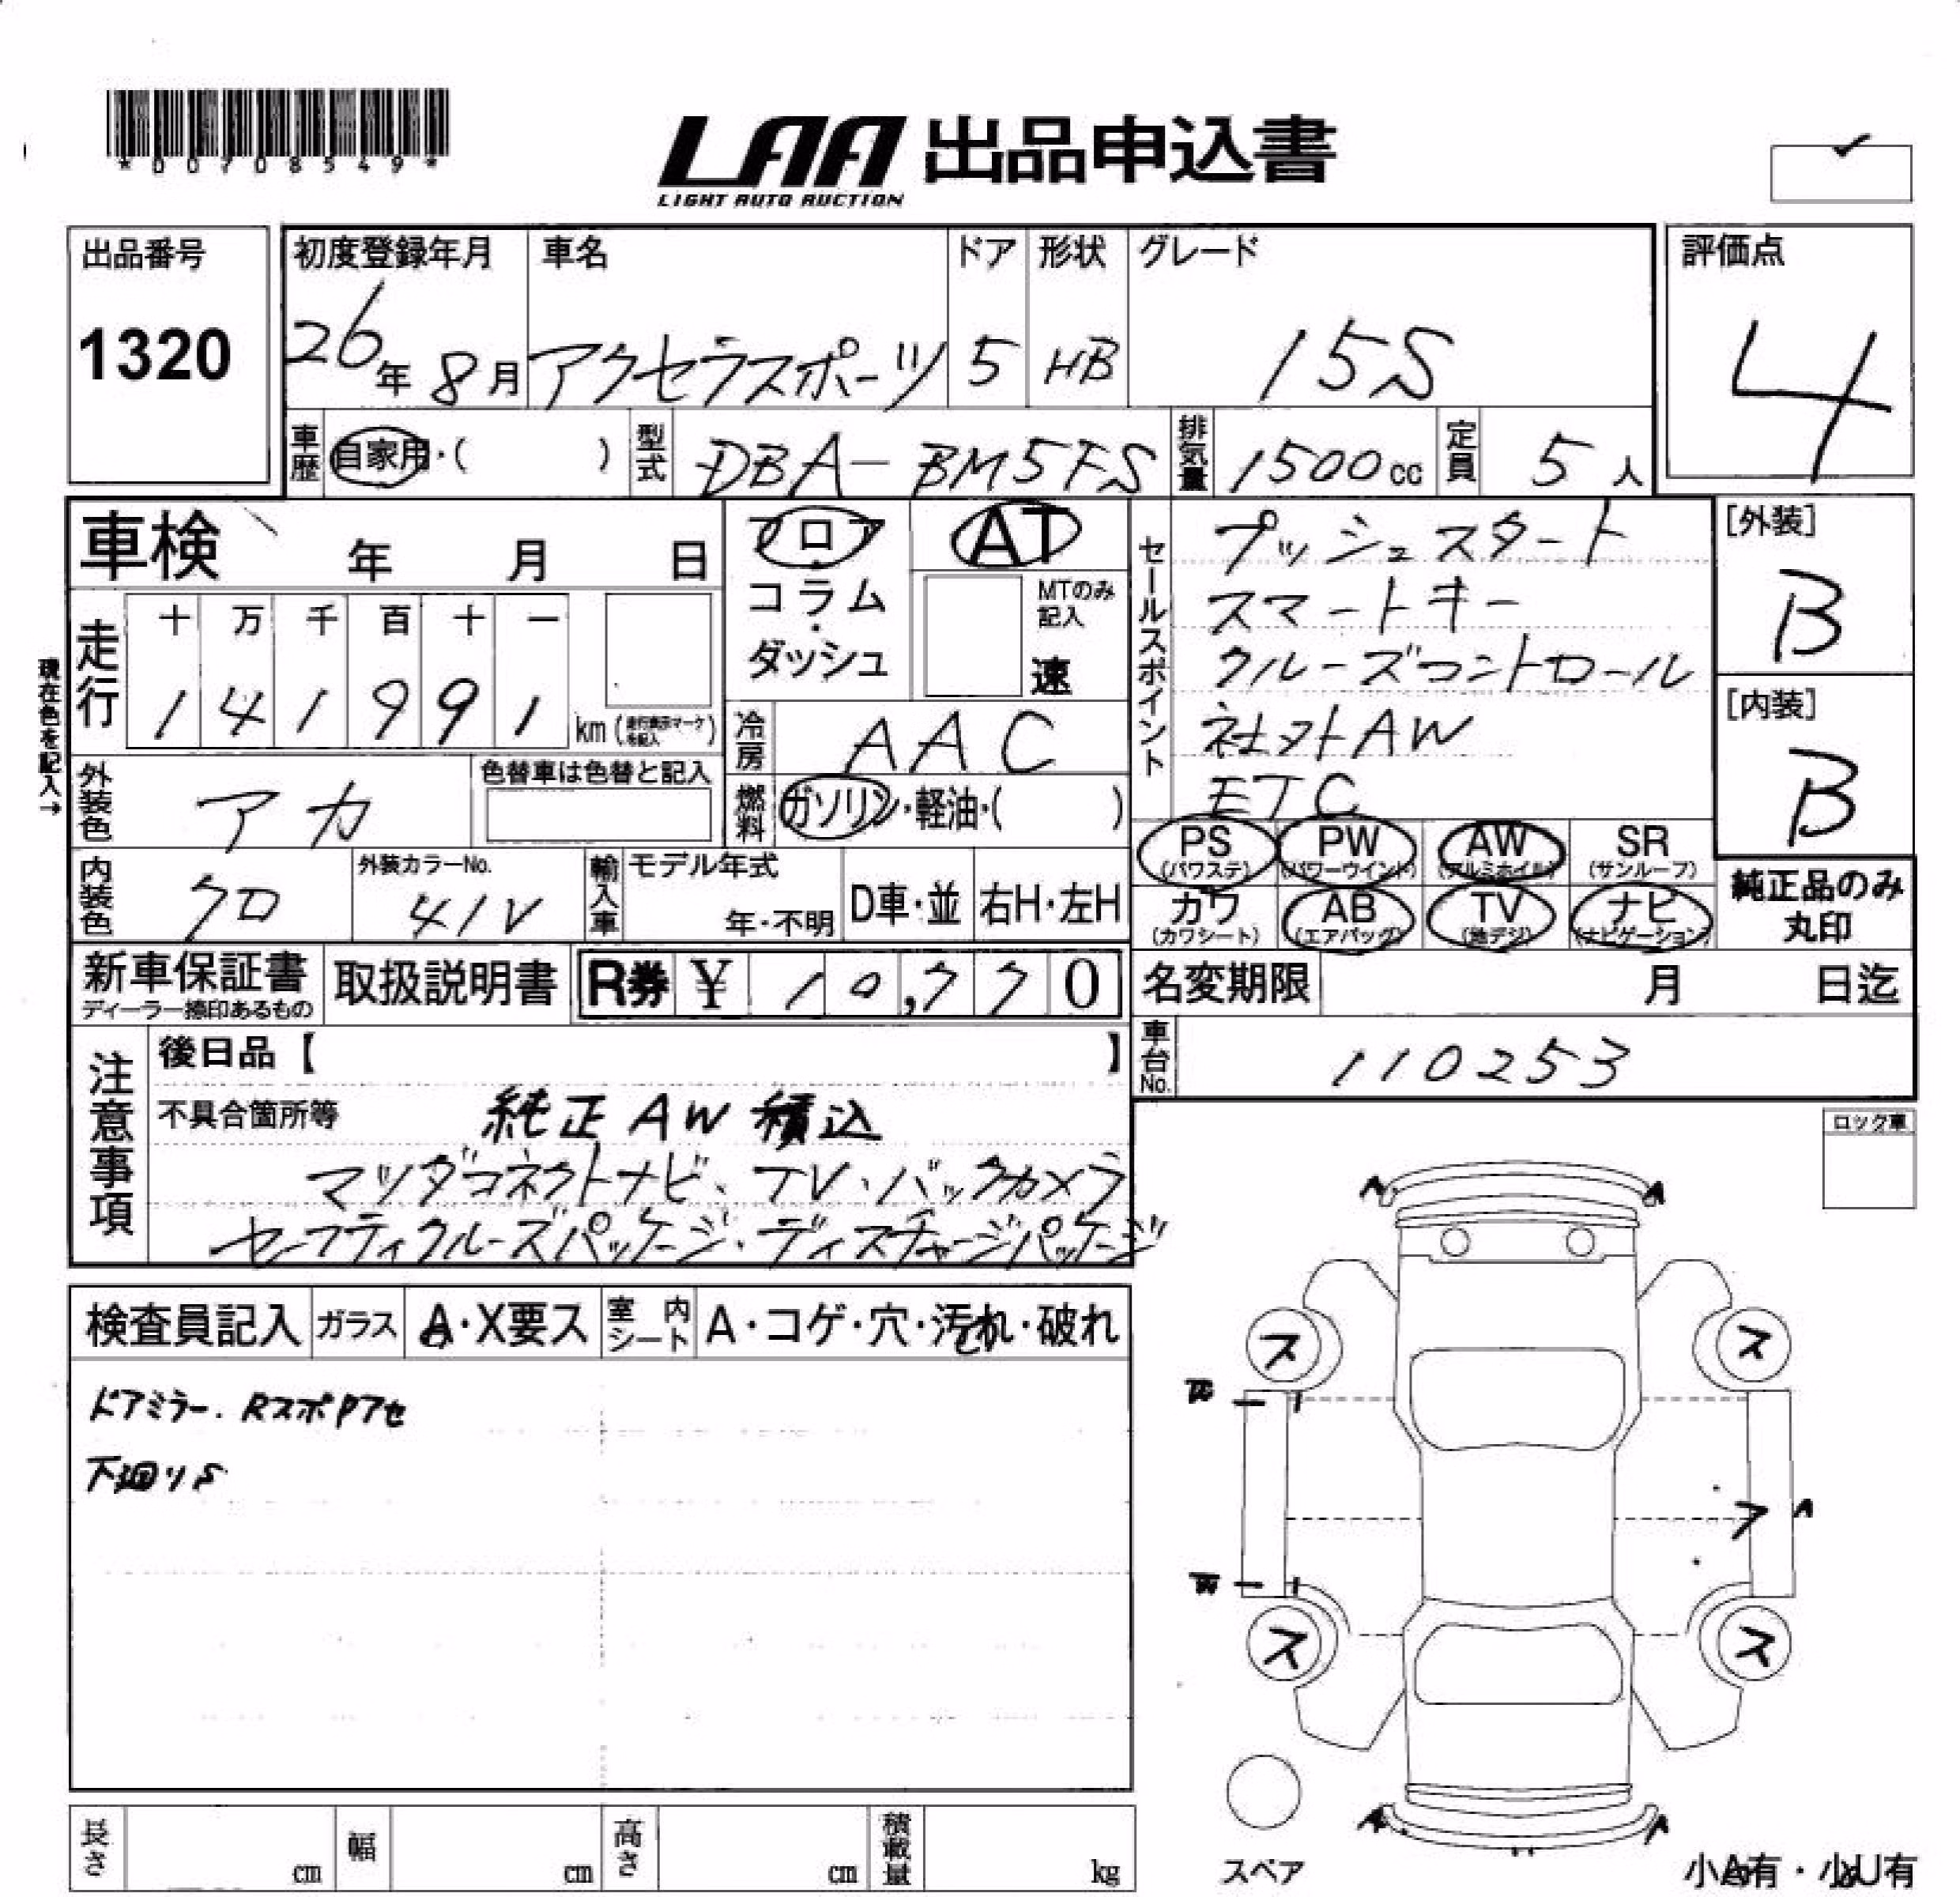 *00708549*
LAA 出品申込書
LIGHT AUTO AUCTION
出品番号
1320
初度登録年月
26年 8月
車名
アクセラスポーツ
ドア
5
形状
HB
グレード
15S
評価点
4
車歴 自家用・( )
型式 DBA-BM5FS
排気量 1500cc
定員 5人
車検 年 月 日
フロア・コラム・ダッシュ
AT
MTのみ記入
速
現在色を記入→
走行
十 万 千 百 十 一
1 4 1 9 9 1 km
(走行表示マークを記入)
冷房 AAC
外装色 アカ
色替車は色替と記入
燃料 ガソリン・軽油・( )
内装色 クロ
外装カラーNo.
41V
輸入車
モデル年式
年・不明
D車・並
右H・左H
セールスポイント
プッシュスタート
スマートキー
クルーズコントロール
社外AW
ETC
[外装]
B
[内装]
B
PS (パワステ)
PW (パワーウインド)
AW (アルミホイル)
SR (サンルーフ)
カワ (カワシート)
AB (エアバッグ)
TV (地デジ)
ナビ (ナビゲーション)
純正品のみ
丸印
新車保証書
ディーラー捺印あるもの
取扱説明書
R券 ¥ 10,770
名変期限 月 日迄
車台No. 110253
注意事項
後日品【 】
不具合箇所等
純正AW積込
マツダコネクトナビ、TV、バックカメラ
セーフティクルーズパッケージ・ディスチャージパッケージ
ロック車
検査員記入
ガラス A・X要ス
室内シート A・コゲ・穴・汚れ・破れ
ドアミラー.Rスポpアセ
下廻りS
A A
ス ス
ア A
ス ス
A A
スペア
小A有・小U有
長さ cm
幅 cm
高さ cm
積載量 kg